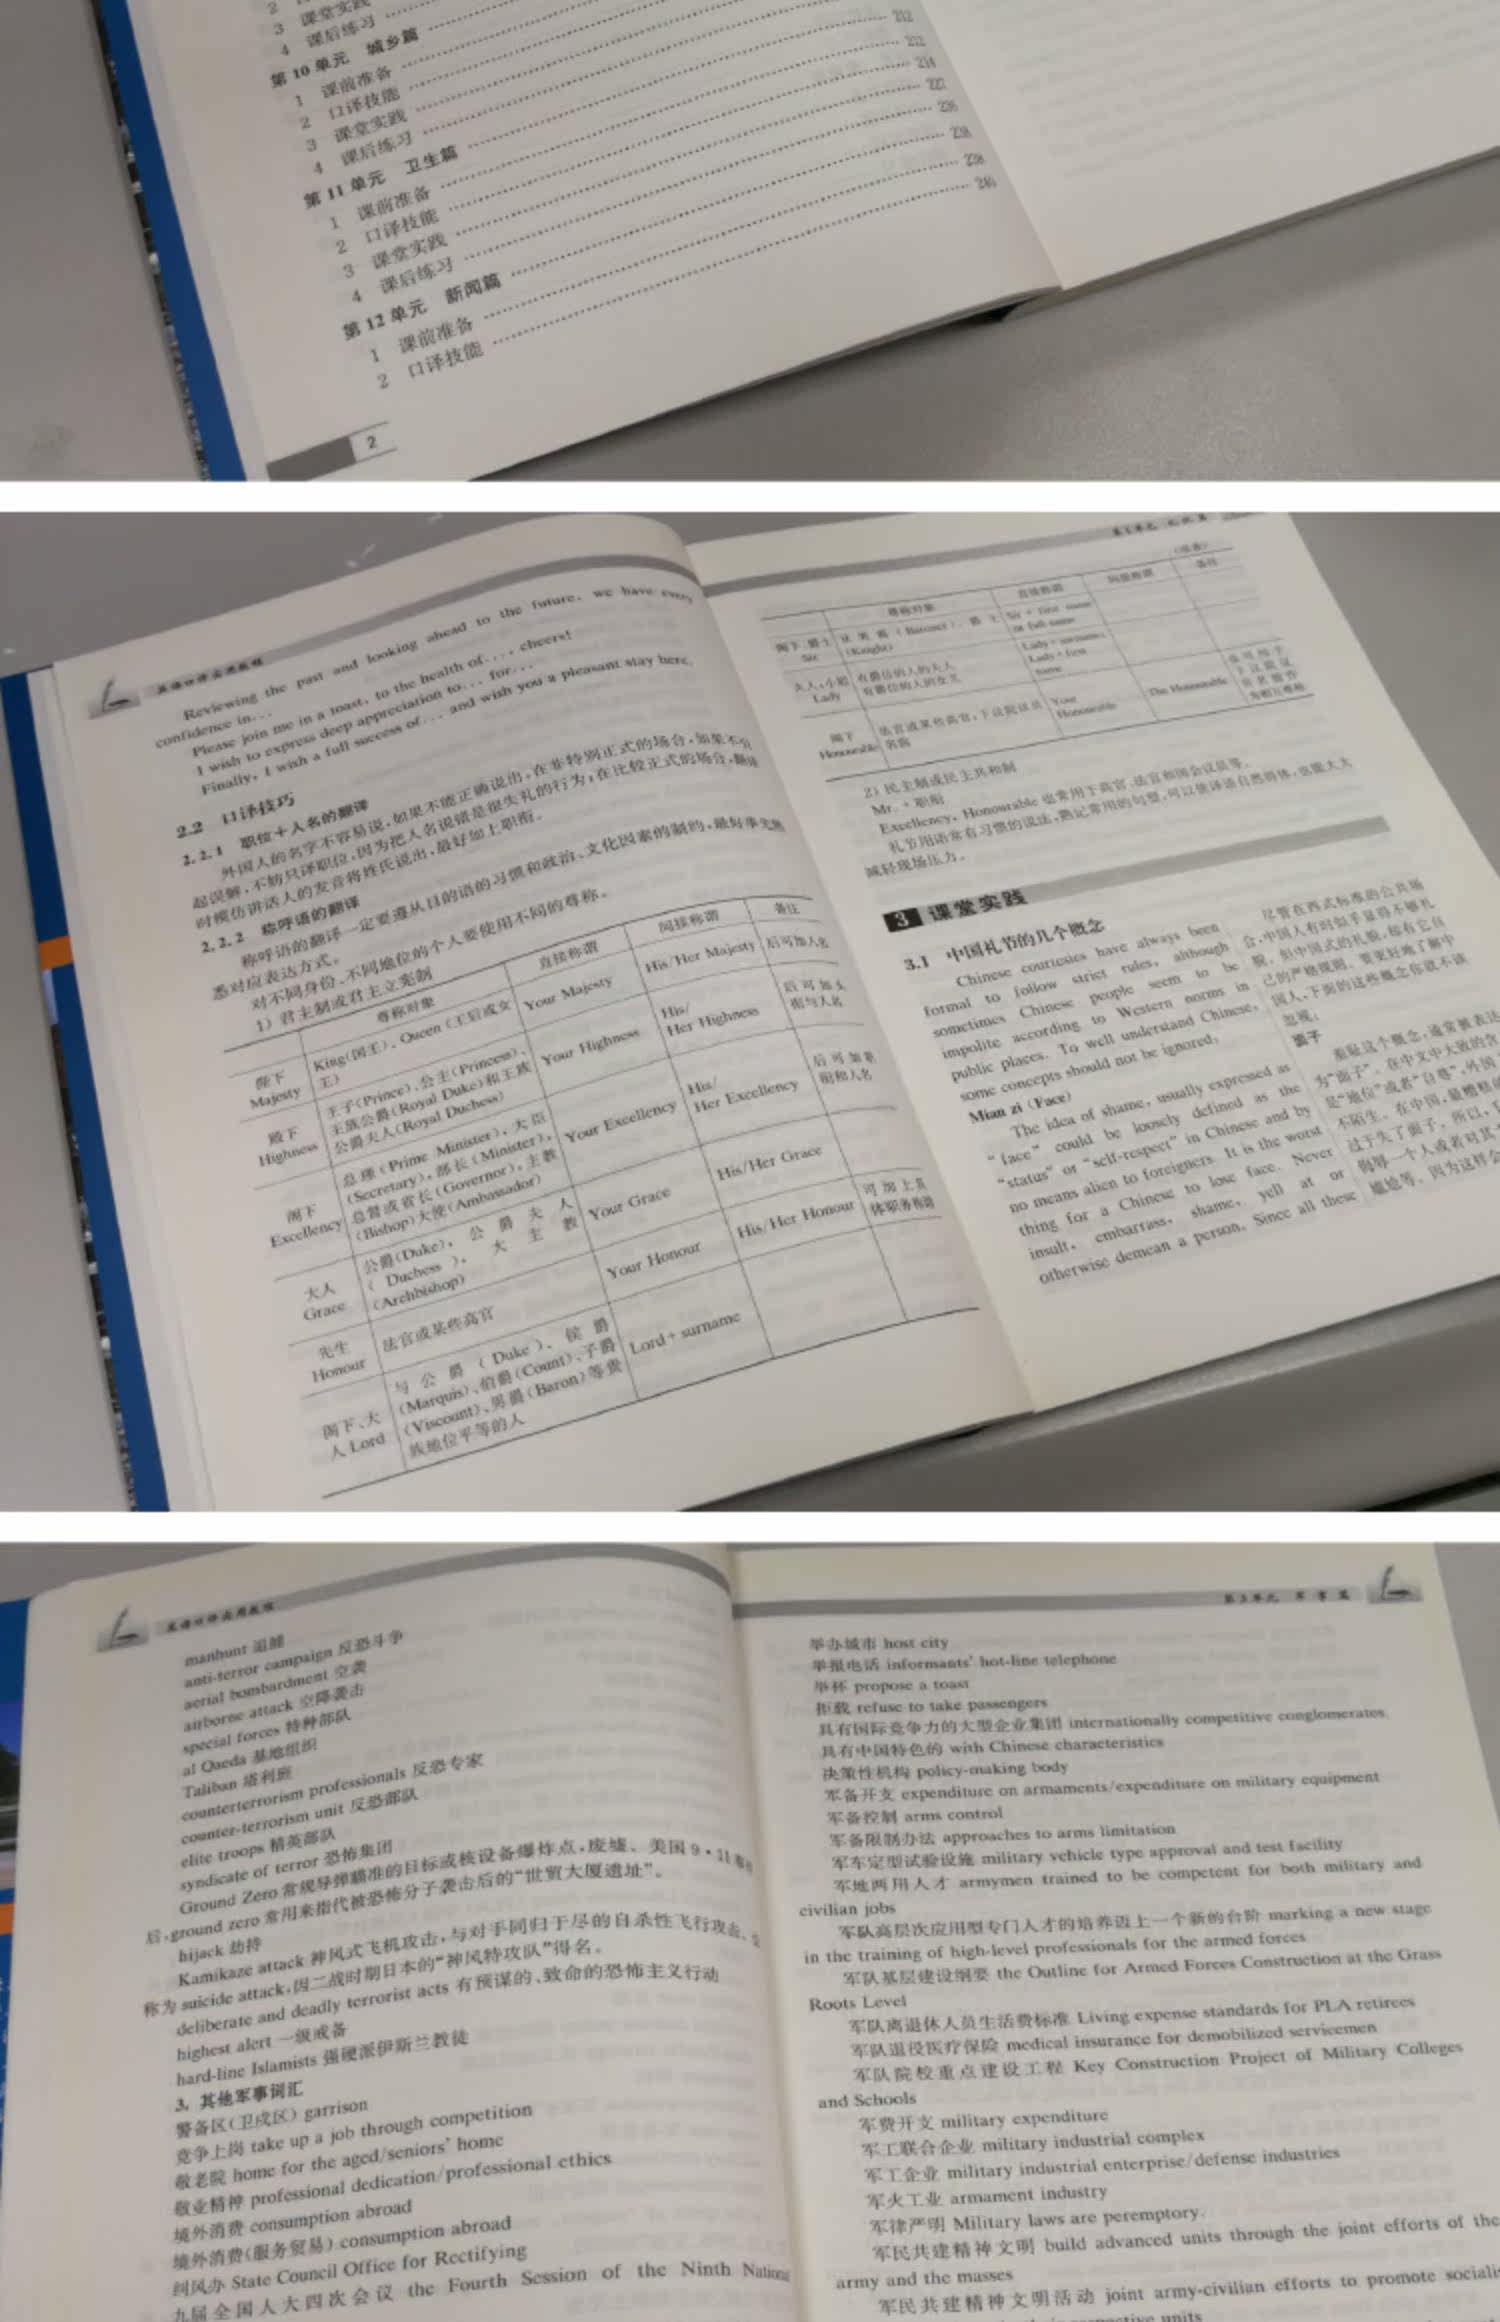 3 课堂实践
4 课后练习
第10单元 城乡篇 212
1 课前准备 212
2 口译技能 214
3 课堂实践 222
4 课后练习 226
第11单元 卫生篇
1 课前准备
2 口译技能
3 课堂实践
4 课后练习
第12单元 新闻篇 238
1 课前准备 238
2 口译技能 240
2
英语口译实用教程
Reviewing the past and looking ahead to the future, we have every
confidence in...
Please join me in a toast, to the health of..., cheers!
I wish to express deep appreciation to... for...
Finally, I wish a full success of... and wish you a pleasant stay here.
2.2 口译技巧
2.2.1 职位+人名的翻译
外国人的名字不容易说,如果不能正确说出,在非特别正式的场合,如果不引
起误解,不妨只译职位,因为把人名说错是很失礼的行为;在比较正式的场合,翻译
时模仿讲话人的发音将姓氏说出,最好加上职衔。
2.2.2 称呼语的翻译
称呼语的翻译一定要遵从目的语的习惯和政治、文化因素的制约,最好事先熟
悉对应表达方式。
对不同身份、不同地位的个人要使用不同的尊称。
1) 君主制或君主立宪制
尊称对象 直接称谓 间接称谓 备注
陛下 Majesty King(国王)、Queen(王后或女王) Your Majesty His/Her Majesty 后可加人名
殿下 Highness 王子(Prince)、公主(Princess)、王族公爵(Royal Duke)和王族公爵夫人(Royal Duchess) Your Highness His/Her Highness 后可加头衔与人名
阁下 Excellency 总理(Prime Minister)、大臣(Secretary)、部长(Minister)、总督或省长(Governor)、主教(Bishop)大使(Ambassador) Your Excellency His/Her Excellency 后可加职衔和人名
大人 Grace 公爵(Duke)、公爵夫人(Duchess)、大主教(Archbishop) Your Grace His/Her Grace
先生 Honour 法官或某些高官 Your Honour His/Her Honour 可加上具体职务称谓
阁下、大人 Lord 与公爵(Duke)、侯爵(Marquis)、伯爵(Count)、子爵(Viscount)、男爵(Baron)等贵族地位平等的人 Lord + surname
(续表)
尊称对象 直接称谓 间接称谓 备注
阁下 爵士 Sir 从男爵(Baronet)、爵士(Knight) Sir + first name or full name
夫人,小姐 Lady 有爵位的人的夫人 有爵位的人的女儿 Lady + surname; Lady + first name
阁下 Honourable 法官或某些高官,下议院议员名前 Your Honourable The Honourable
2) 民主制或民主共和制
Mr. + 职衔
Excellency, Honourable 也常用于高官、法官和国会议员等。
礼节用语常有习惯的说法,熟记常用的句型,可以使译语自然得体,也能大大
减轻现场压力。
3 课堂实践
3.1 中国礼节的几个概念
Chinese courtesies have always been
formal to follow strict rules, although
sometimes Chinese people seem to be
impolite according to Western norms in
public places. To well understand Chinese,
some concepts should not be ignored:
Mian zi (Face)
The idea of shame, usually expressed as
"face" could be loosely defined as the
"status" or "self-respect" in Chinese and by
no means alien to foreigners. It is the worst
thing for a Chinese to lose face. Never
insult, embarrass, shame, yell at or
otherwise demean a person. Since all these
尽管在西式标准的公共场
合,中国人有时似乎显得不够礼
貌,但中国式的礼貌,却有它自
己的严格规则。要更好地了解中
国人,下面的这些概念你就不该
忽视:
面子
羞耻这个概念,通常被表达
为"面子"。在中文中大致的含
是"地位"或者"自尊",外国
不陌生。在中国,最糟糕的
过于失了面子。所以,
侮辱一个人或者对其
尴尬等。因为这样会
英语口译实用教程
manhunt 追捕
anti-terror campaign 反恐斗争
aerial bombardment 空袭
airborne attack 空降袭击
special forces 特种部队
al Qaeda 基地组织
Taliban 塔利班
counterterrorism professionals 反恐专家
counter-terrorism unit 反恐部队
elite troops 精英部队
syndicate of terror 恐怖集团
Ground Zero 常规导弹瞄准的目标或核设备爆炸点,废墟。美国9·11事件
后,ground zero 常用来指代被恐怖分子袭击后的"世贸大厦遗址"。
hijack 劫持
Kamikaze attack 神风式飞机攻击,与对手同归于尽的自杀性飞行攻击,
称为 suicide attack,因二战时期日本的"神风特攻队"得名。
deliberate and deadly terrorist acts 有预谋的、致命的恐怖主义行动
highest alert 一级戒备
hard-line Islamists 强硬派伊斯兰教徒
3. 其他军事词汇
警备区(卫戍区) garrison
竞争上岗 take up a job through competition
敬老院 home for the aged/seniors' home
敬业精神 professional dedication/professional ethics
境外消费 consumption abroad
境外消费(服务贸易) consumption abroad
纠风办 State Council Office for Rectifying
九届全国人大四次会议 the Fourth Session of the Ninth National
第3单元 军事篇
举办城市 host city
举报电话 informants' hot-line telephone
举杯 propose a toast
拒载 refuse to take passengers
具有国际竞争力的大型企业集团 internationally competitive conglomerates
具有中国特色的 with Chinese characteristics
决策性机构 policy-making body
军备开支 expenditure on armaments/expenditure on military equipment
军备控制 arms control
军备限制办法 approaches to arms limitation
军车定型试验设施 military vehicle type approval and test facility
军地两用人才 armymen trained to be competent for both military and
civilian jobs
军队高层次应用型专门人才的培养迈上一个新的台阶 marking a new stage
in the training of high-level professionals for the armed forces
军队基层建设纲要 the Outline for Armed Forces Construction at the Grass
Roots Level
军队离退休人员生活费标准 Living expense standards for PLA retirees
军队退役医疗保险 medical insurance for demobilized servicemen
军队院校重点建设工程 Key Construction Project of Military Colleges
and Schools
军费开支 military expenditure
军工联合企业 military industrial complex
军工企业 military industrial enterprise/defense industries
军火工业 armament industry
军律严明 Military laws are peremptory.
军民共建精神文明 build advanced units through the joint efforts of the
army and the masses
军民共建精神文明活动 joint army-civilian efforts to promote socialis
units